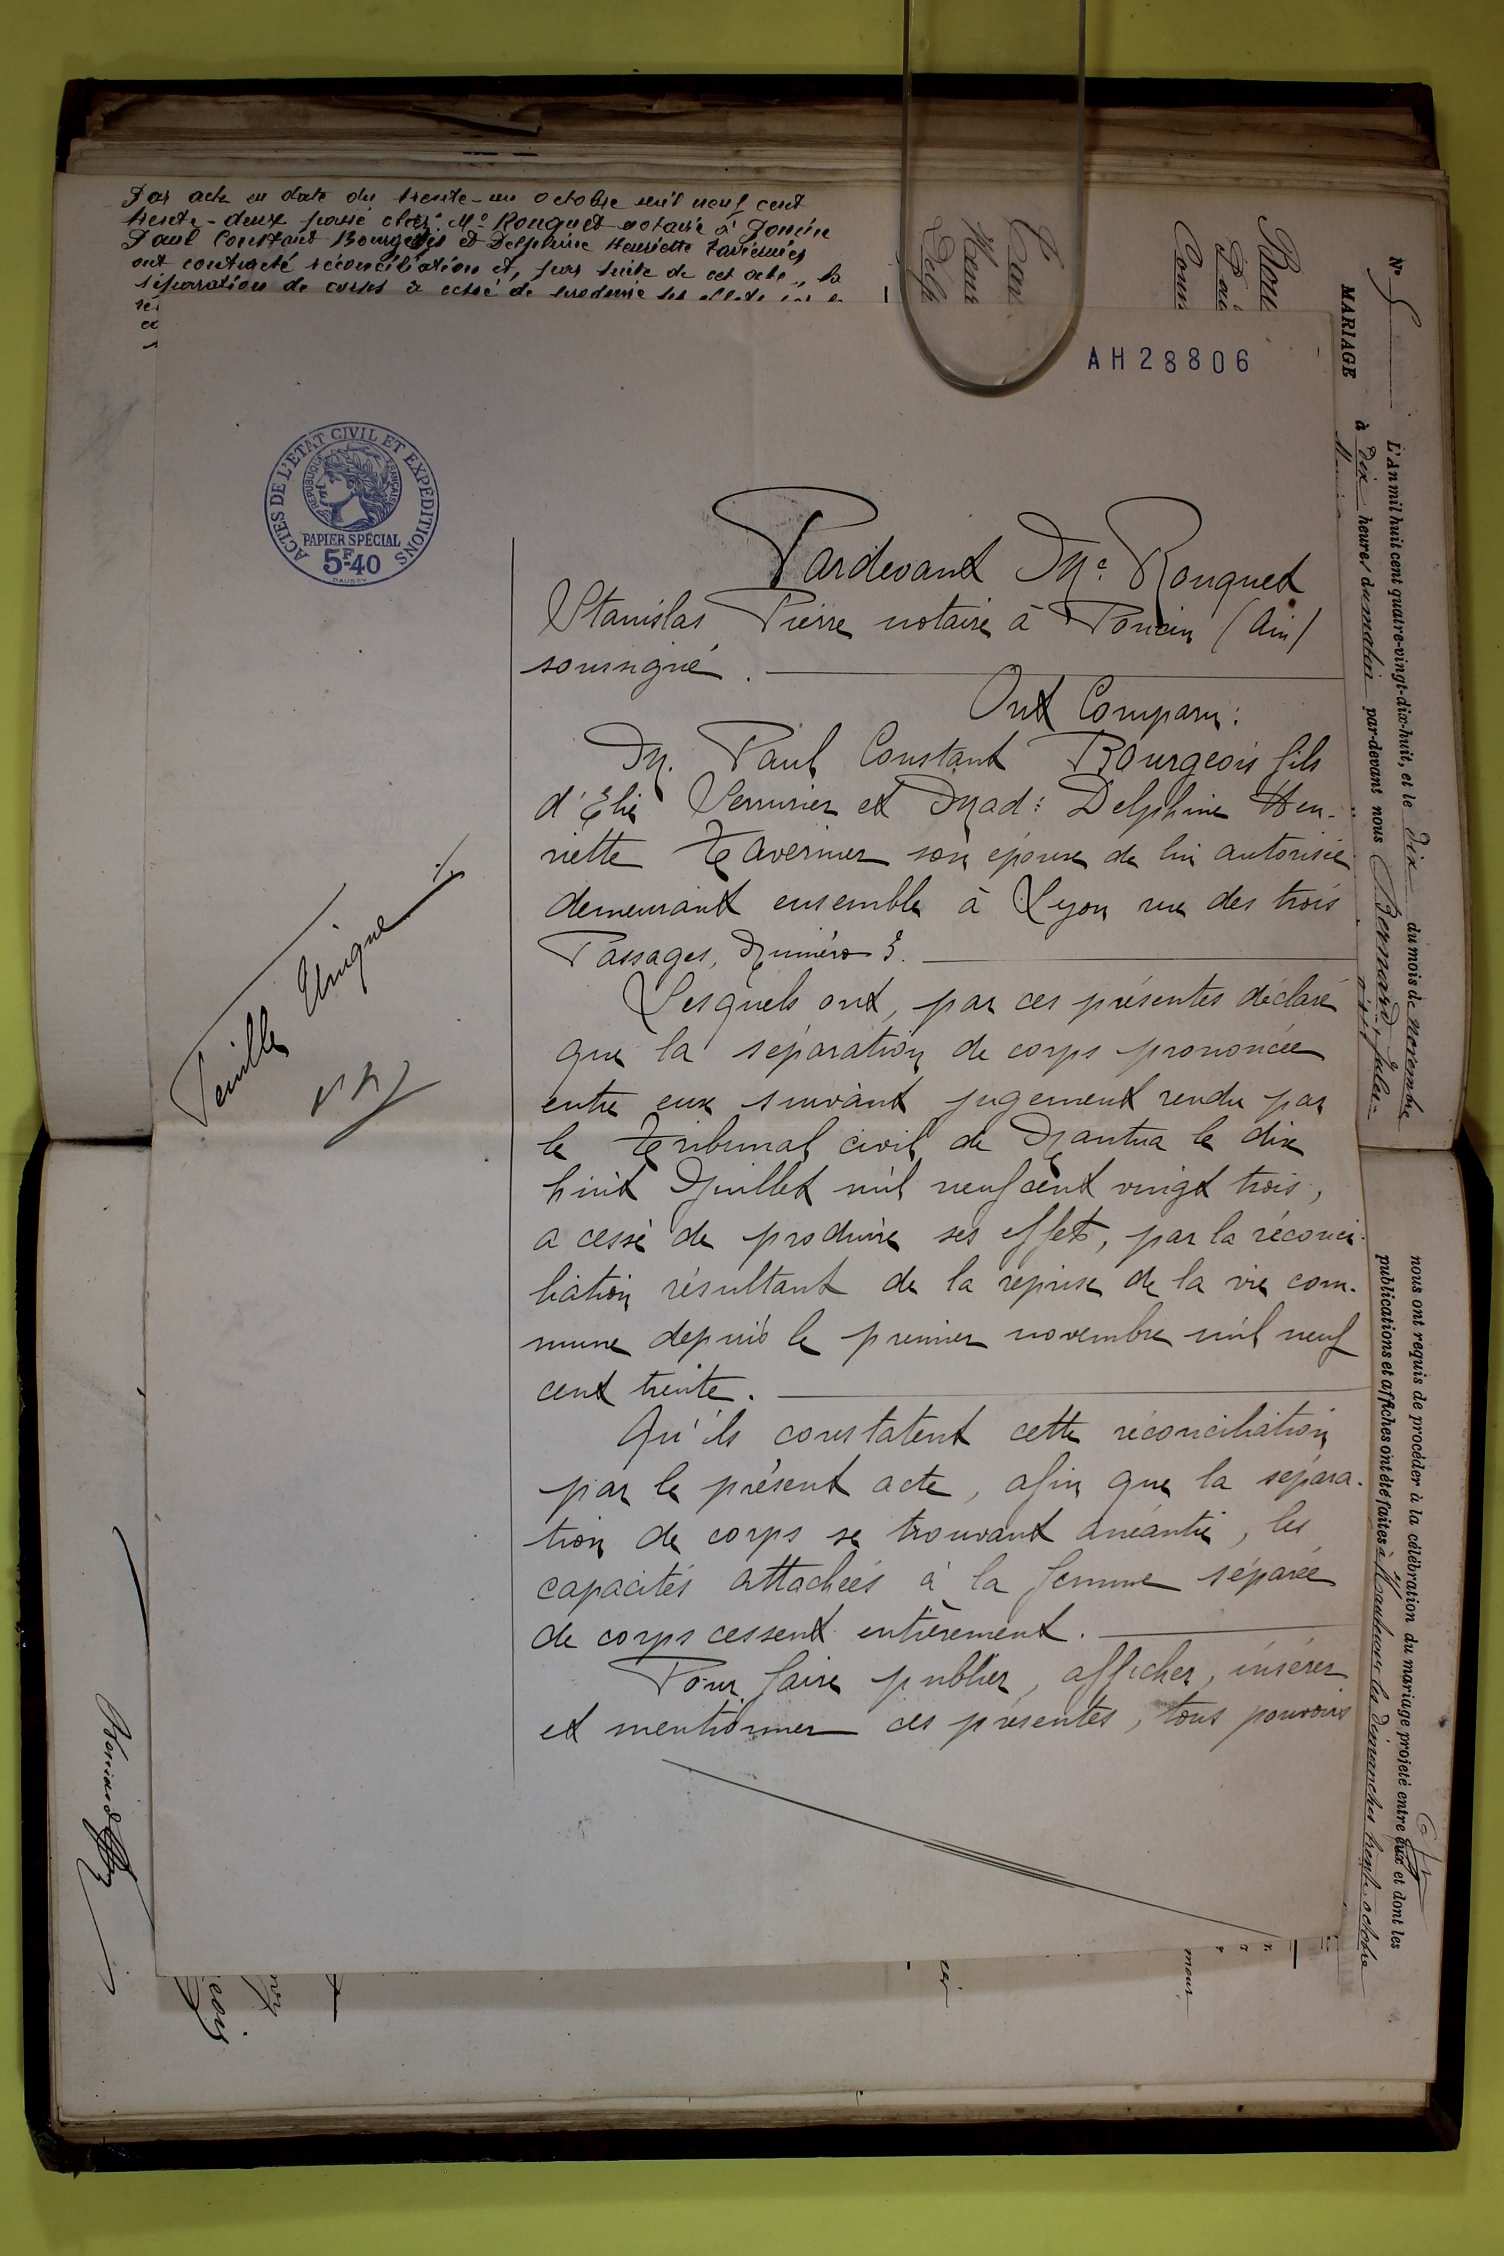 Par acte en date du trente-un octobre mil neuf cent
trente-deux passé chez Me Rouquet notaire à Poncin
Paul Constant Bourgeois et Delphine Henriette Tavernier
ont contracté réconciliation et, par suite de cet acte, la
séparation de corps a cessé de produire ses effets
AH28806
ACTES DE L'ETAT CIVIL ET EXPEDITIONS
REPUBLIQUE FRANÇAISE
PAPIER SPECIAL
5F.40
Pardevant Me Rouquet
Stanislas Pierre notaire à Poncin (Ain)
soussigné.
Ont Comparu:
M. Paul Constant Bourgeois fils
d'Elie Serrurier et Made Delphine Hen-
riette Tavernier son épouse de lui autorisée
demeurant ensemble à Lyon rue des trois
Passages, Numéro 3.
Lesquels ont, par ces présentes déclaré
que la séparation de corps prononcée
entre eux suivant jugement rendu par
le Tribunal civil de Nantua le dix
huit Juillet mil neuf cent vingt trois,
a cessé de produire ses effets, par la réconci-
liation résultant de la reprise de la vie com-
mune depuis le premier novembre mil neuf
cent trente.
Qu'ils constatent cette réconciliation
par le présent acte, afin que la sépara-
tion de corps se trouvant anéantie, les
capacités attachées à la femme séparée
de corps cessent entièrement.
Pour faire publier, afficher, insérer
et mentionner ces présentes, tous pouvoirs
Feuille Unique
No 5
MARIAGE
L'An mil huit cent quatre-vingt-dix-huit, et le dix du mois de novembre
à dix heures du matin par-devant nous Bernard Jules
nous ont requis de procéder à la célébration du mariage projeté entre eux et dont les
publications et affiches ont été faites à les dimanches trente octobre